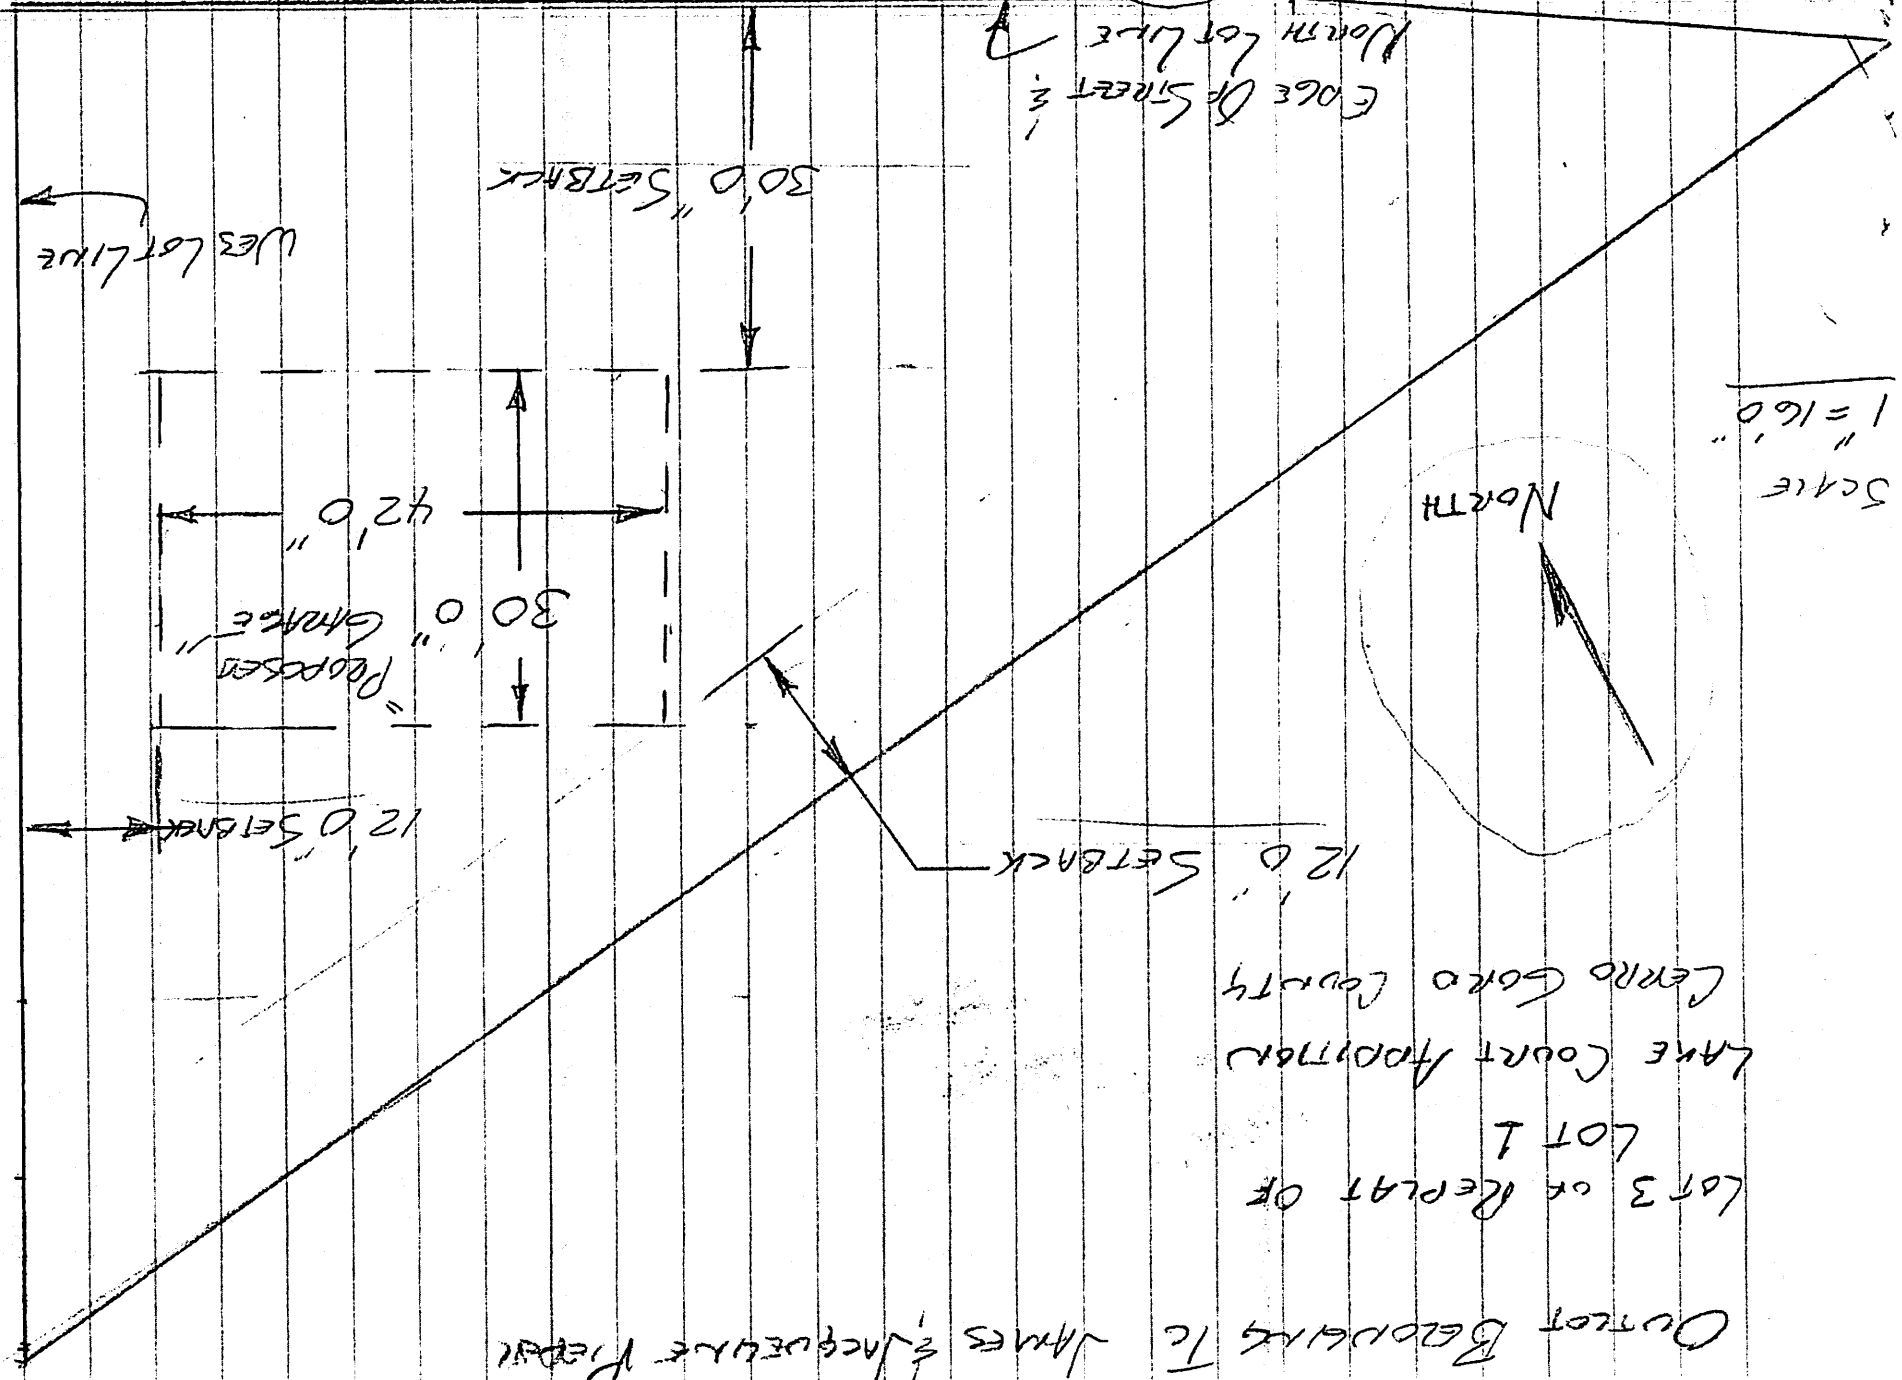 OUTLOT BELONGING TO JAMES & JACQUELINE
LOT 3 OF REPLAT OF
LOT 1
LAKE COURT ADDITION
CERRO GORDO COUNTY
12'0" SETBACK
12'0" SETBACK
"PROPOSED
GARAGE"
30'0"
42'0"
SCALE
1"=16'0"
NORTH
WES LOT LINE
30'0" SETBACK
EDGE OF STREET &
NORTH LOT LINE